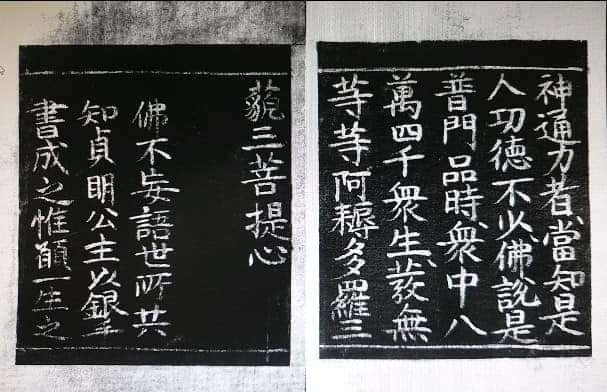 神通力者當知是
人功德不少佛說是
普門品時衆中八
萬四千衆生發無
等等阿耨多羅三
藐三菩提心
佛不妄語世所共
知貞明公主以銀
書成之惟願一生之